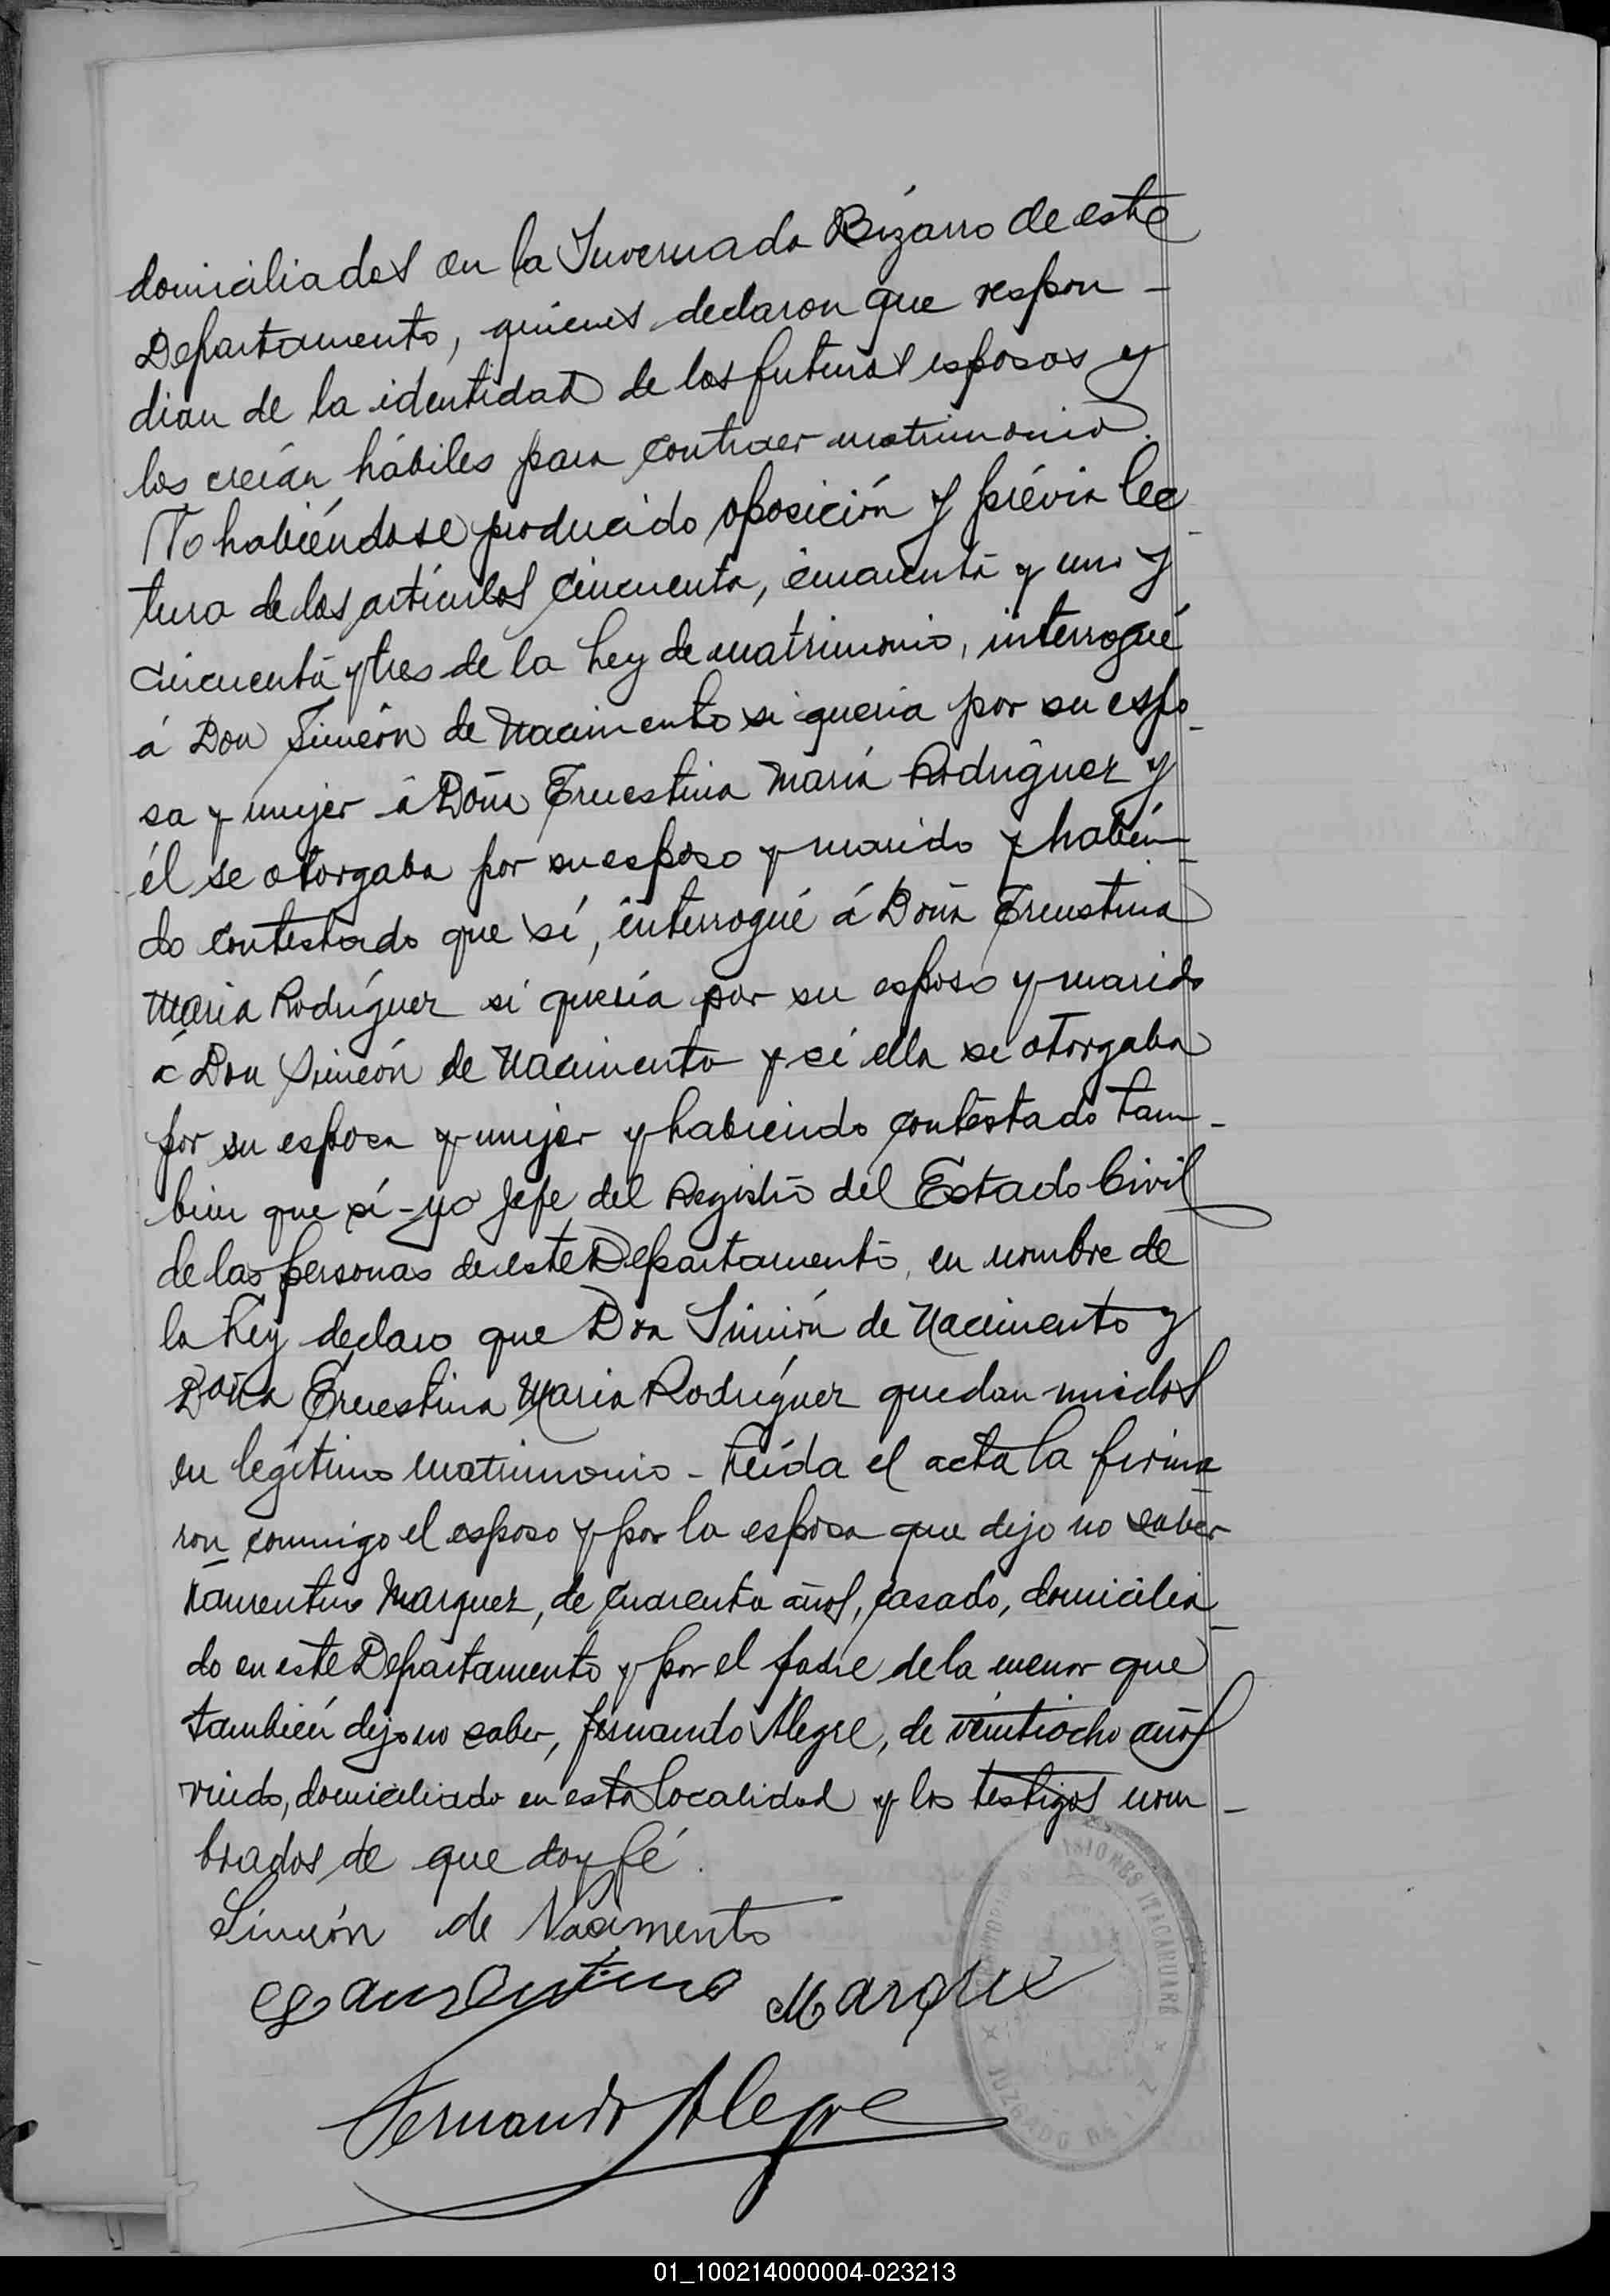 domiciliados en la Invernada Bizarro de este
Departamento, quienes declaron que respon-
dian de la identidad de los futuros esposos y
los creían hábiles para contraer matrimonio.
No habiéndose producido oposición y prévia lec
tura de los artículos cincuenta, cincuenta y uno y
cincuenta y tres de la Ley de matrimonio, interrogué
á Don Simeón de Nacimento si queria por su espo-
sa y mujer á Doña Ernestina María Rodríguez y
él se otorgaba por su esposo y marido y habien-
do contestado que sí, interrogué á Doña Ernestina
María Rodríguez si quería por su esposo y marido
á Don Simeón de Nacimento y si ella se otorgaba
por su esposa y mujer y habiendo contestado tam-
bien que sí - yo Jefe del Registro del Estado Civil
de las personas de este Departamento, en nombre de
la Ley declaro que Don Simeón de Nacimento y
Doña Ernestina Maria Rodríguez quedan unidos
en legítimo matrimonio - Leída el acta la firma
ron conmigo el esposo y por la esposa que dijo no saber
Laurentino Marquez, de cuarenta años, casado, domicilia-
do en este Departamento y por el padre de la menor que
también dijo no saber, Fernando Alegre, de veintiocho años
viudo, domiciliado en esta localidad y los testigos nom-
brados de que doy fé.
Simeón de Nacimento
Laurentino Marquez
Fernando Alegre
ISIONES ITACARUARÉ
JUZGADO DE
01_100214000004-023213